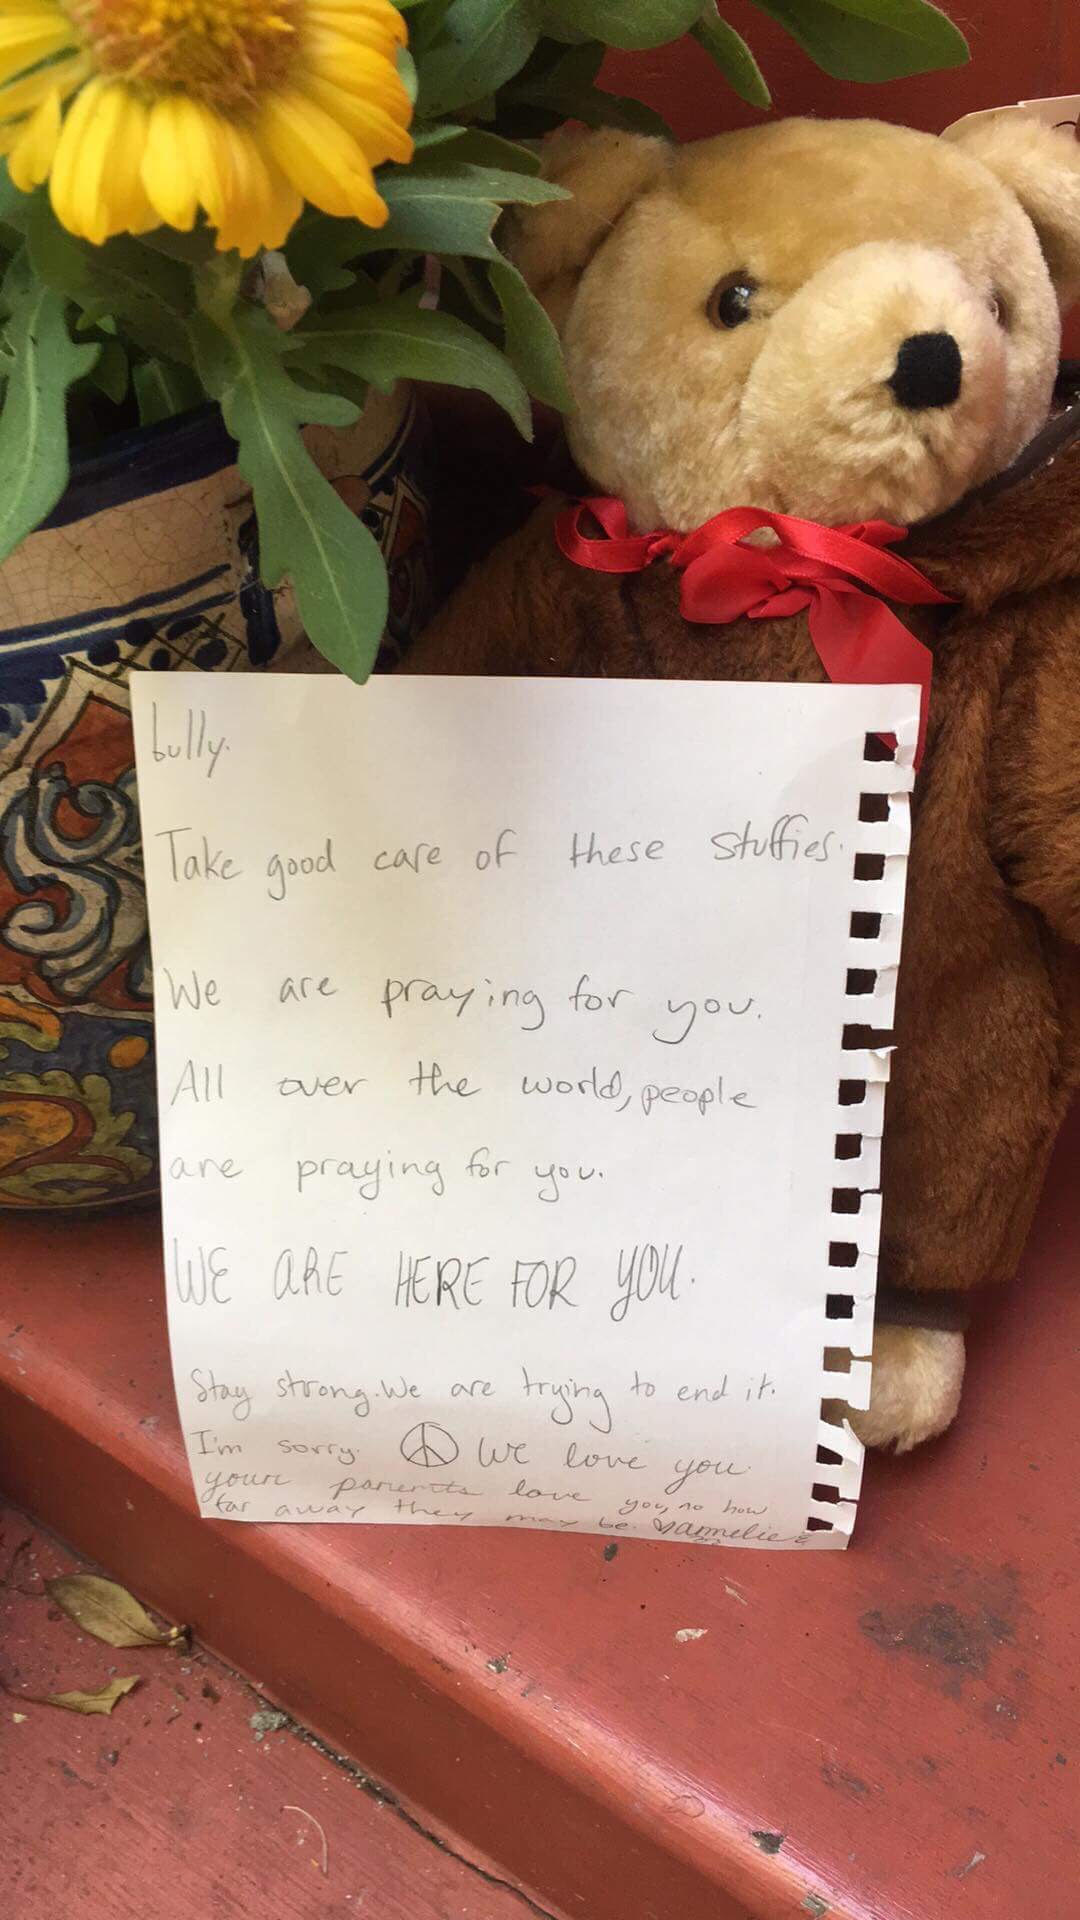 bully.
Take good care of these stuffies.
We are praying for you.
All over the world, people
are praying for you.
WE ARE HERE FOR YOU.
Stay strong. We are trying to end it.
I'm sorry. ☮ We love you.
youre parents love you, no how
far away they may be. ♡annelie